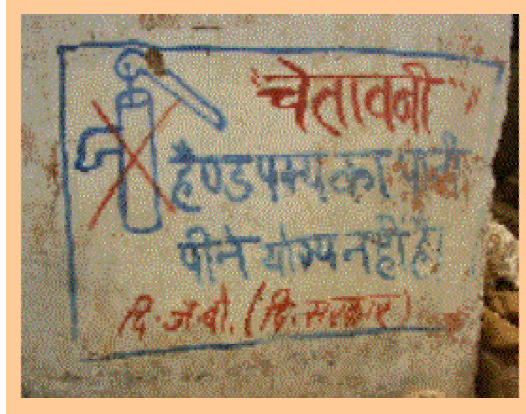 चेतावनी
हैण्डपम्प का पानी
पीने योग्य नहीं है।
दि.ज.बो. (दि. सरकार)